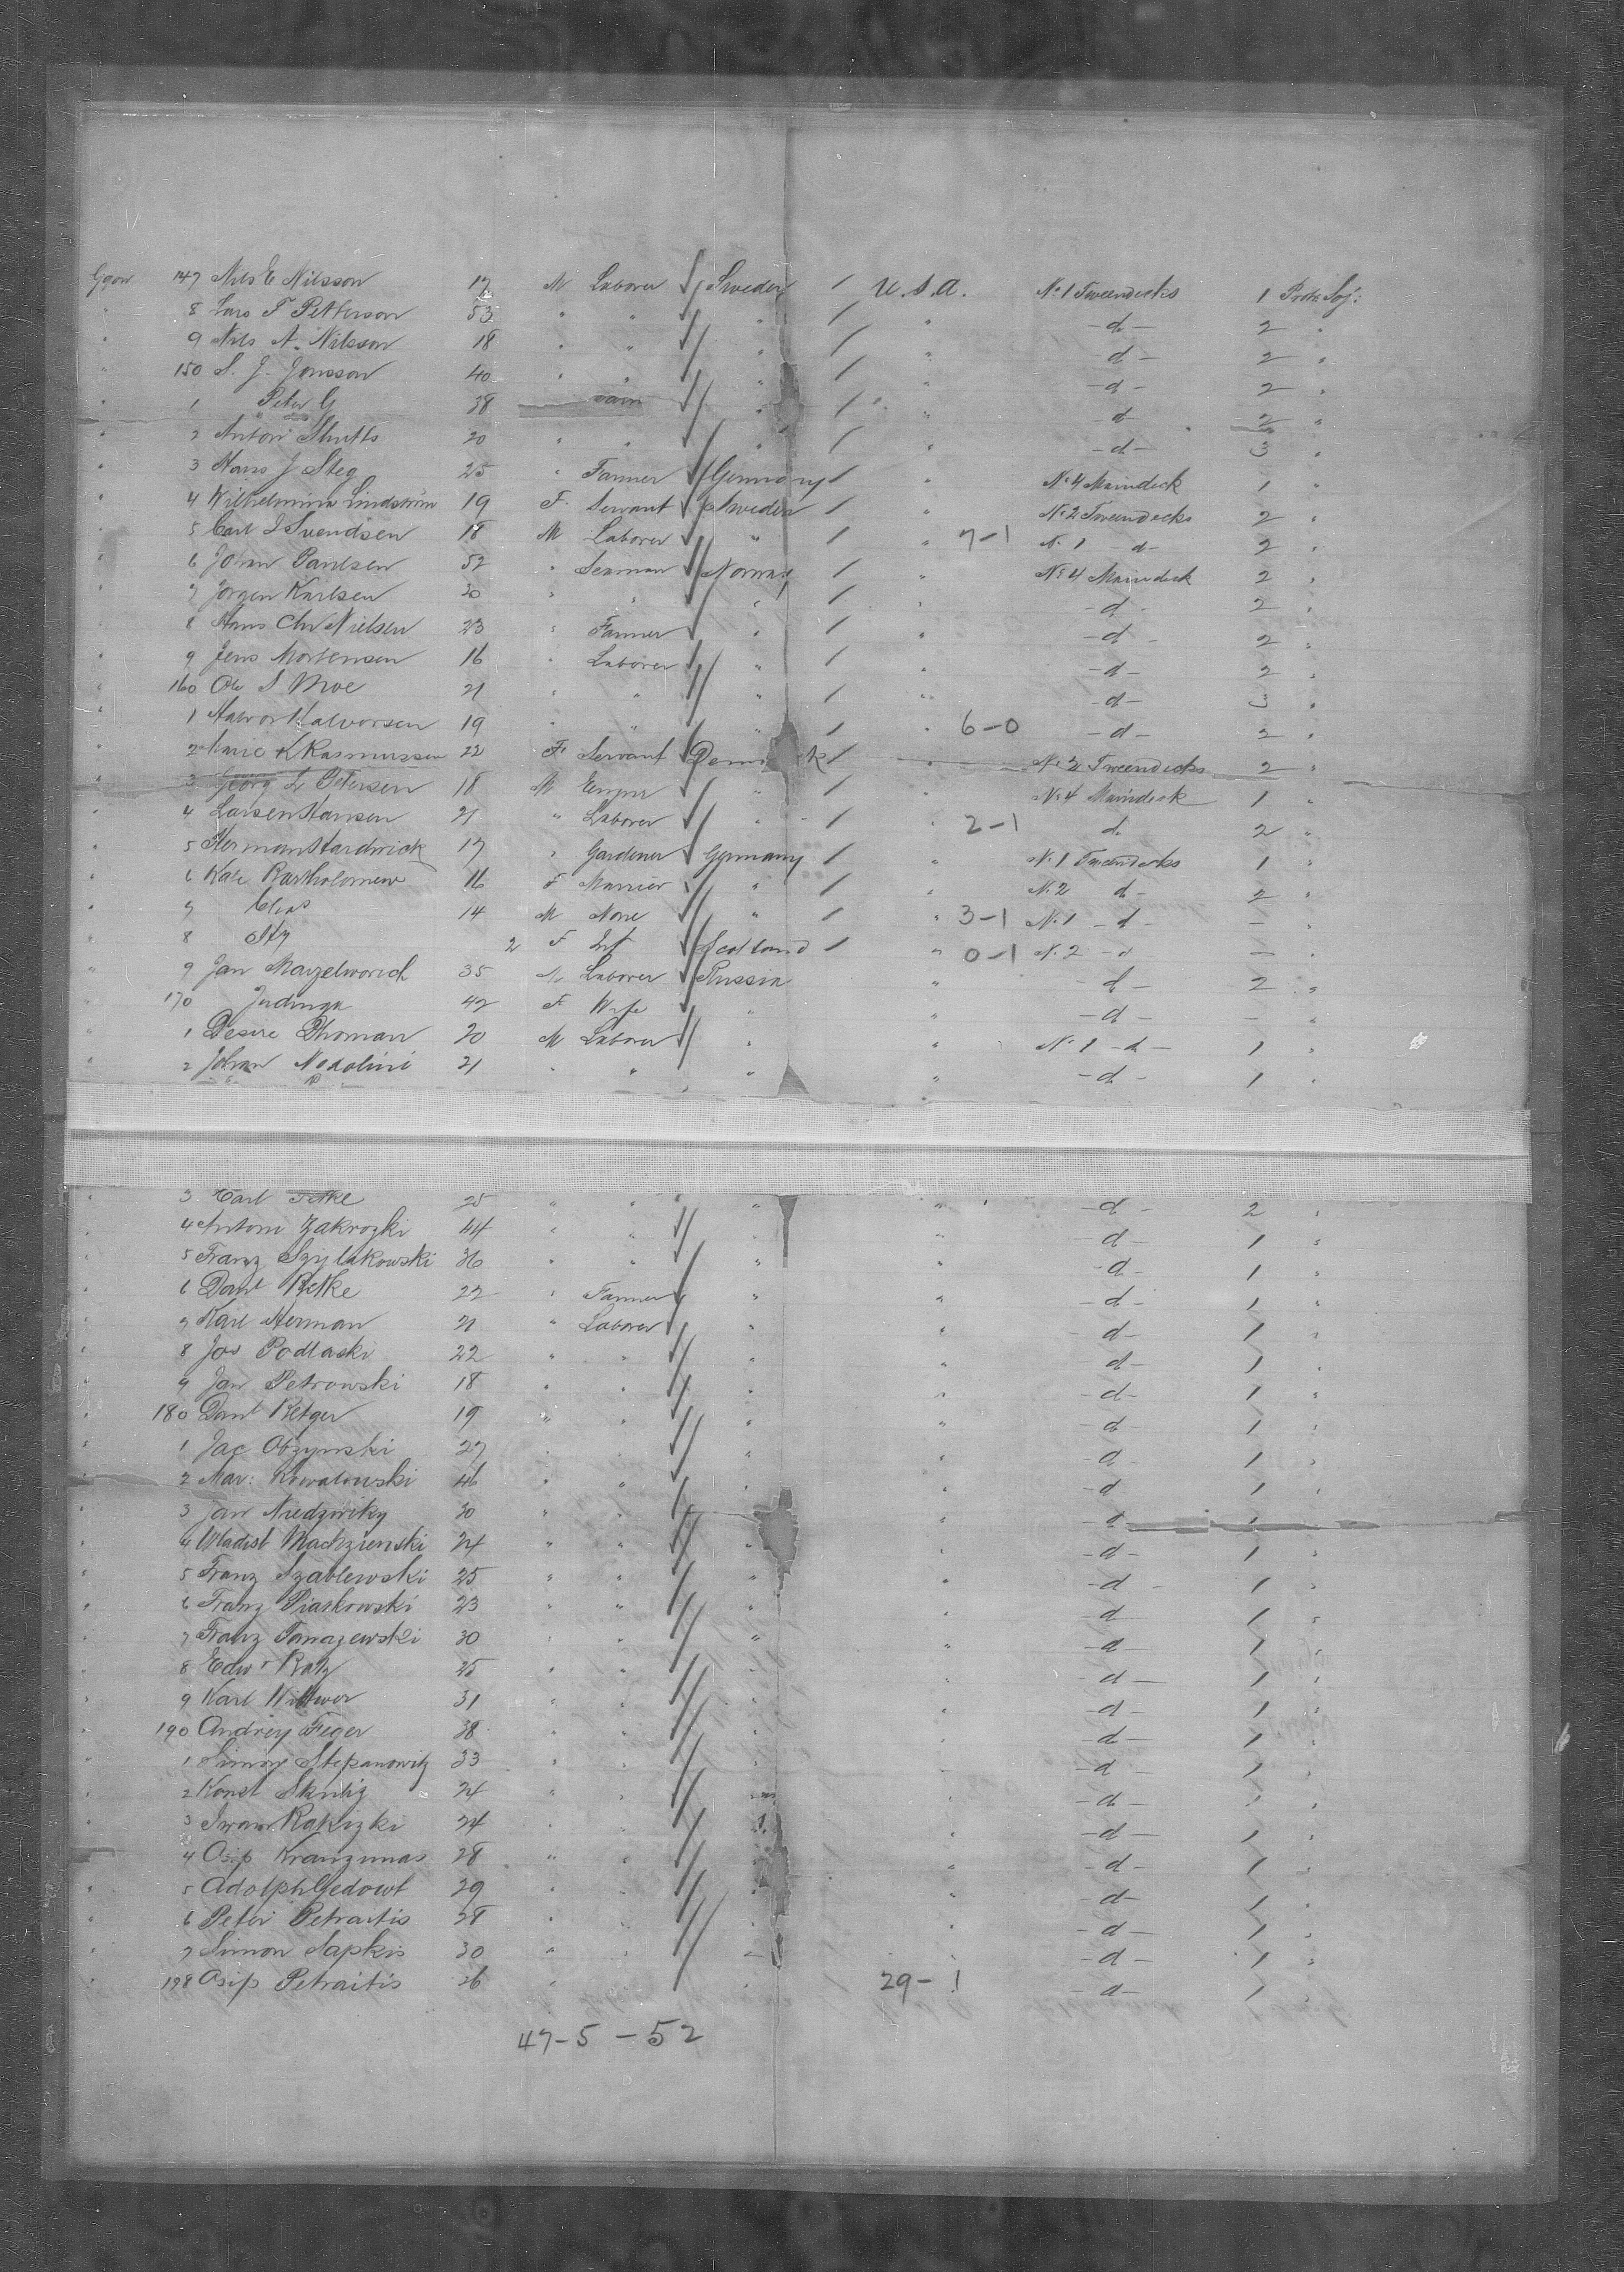 Ggow 147 Nils E Nilsson 17 M Laborer Sweden / U.S.A. No 1 Tweendecks 1 Protr Soj:
" 8 Lars F Petterson 53 " " " / " -d- 2 "
" 9 Nils A. Nilsson 18 " " " / " -d- 2 "
" 150 S. J. Jonsson 40 " " " / " -d- 2 "
" 1 Peter G 38 " / " -d 2 "
" 2 Anton 20 " " " / " -d- 3 "
" 3 Hans J Steg 25 " Farmer Germany / " No 4 Maindeck 1 "
" 4 Wilhelmina Lindström 19 F. Servant Sweden / " No 2 Tweendecks 2 "
" 5 Carl J Svendsen 18 M Laborer " / " 7-1 No 1 -d- 2 "
" 6 Johan Paulsen 52 " Seaman Norway / " No 4 Maindeck 2 "
" 7 Jorgen Karlsen 20 " " " / " -d- 2 "
" 8 Hans Chr Nielsen 23 " Farmer " / " -d- 2 "
" 9 Jens Mortensen 16 " Laborer " / " -d- 2 "
" 160 Ole S Moe 21 " " " / " -d- 3 "
" 1 Halvor Halvorsen 19 " " " / " 6-0 -d- 2 "
" 2 Marie K Rasmussen 22 F Servant Denm k / " No 2 Tweendecks 2 "
" 3 Georg L Petersen 18 M " / " No 4 Maindeck 1 "
" 4 Larsen Hansen 21 " Laborer " / " 2-1 d. 2 "
" 5 Herman Hardwick 17 " Gardener Germany / " No 1 Tweendecks 1 "
" 6 Kate Bartholomew 16 F " / " No 2 d- 2 "
" 7 Chas 14 M None " / " 3-1 No 1 -d- - "
" 8 2 F Inf Scotland / " 0-1 No 2 -d - "
" 9 Jan 35 M Laborer Russia " -d- 2 "
170 42 F Wife " " -d- - "
" 1 Desire Thoman 20 M Laborer " " No 1 -d- 1 "
" 2 Johan Nadolini 21 " " " " -d- 1 "
" 3 Carl Fetke 25 " " " " -d- 2 "
" 4 Antoni Zakrozki 44 " " " " -d- 1 "
" 5 Franz 36 " " " " -d- 1 "
" 6 Danl Retke 22 " Farmer " " -d- 1 "
" 7 Karl Herman 21 " Laborer " " -d- 1 "
" 8 Jos Podlaski 22 " " " " -d- 1 "
" 9 Jan Petrowski 18 " " " " -d- 1 "
" 180 Danl Retger 19 " " " " -d- 1 "
" 1 Jac Obzynski 27 " " " " -d- 1 "
" 2 Mar: Kowalowski 46 " " " " -d 1 "
" 3 Jan Niedzwiky 30 " " " -d- 1
" 4 Wladisl Machzienski 24 " " " " -d- 1 "
" 5 Franz Szablewski 25 " " " " -d- 1 "
" 6 Franz Piaskowski 23 " " " " -d 1 "
" 7 Franz Tomazewski 30 " " " " -d- 1 "
" 8 Edwd Ratz 25 " " " " -d- 1 "
" 9 Karl Wittwer 31 " " " " -d- 1 "
" 190 Andrey Feger 38 " " " " -d- 1 "
" 1 Simon Stepanowitz 33 " " " " -d- 1 "
" 2 Konst 24 " " " " -d- "
" 3 Iwan Rakizki 24 " " " " -d- 1 "
" 4 Osip Kranzunas 28 " " " -d- 1 "
" 5 Adolph Gedowt 29 " " " -d- 1 "
" 6 Peter Petraitis 28 " " " -d- 1 "
" 7 Simon Sapkis 30 " " " " -d- 1 "
" 198 Osip Petraitis 26 " " " 29-1 -d- 1 "
47-5-52